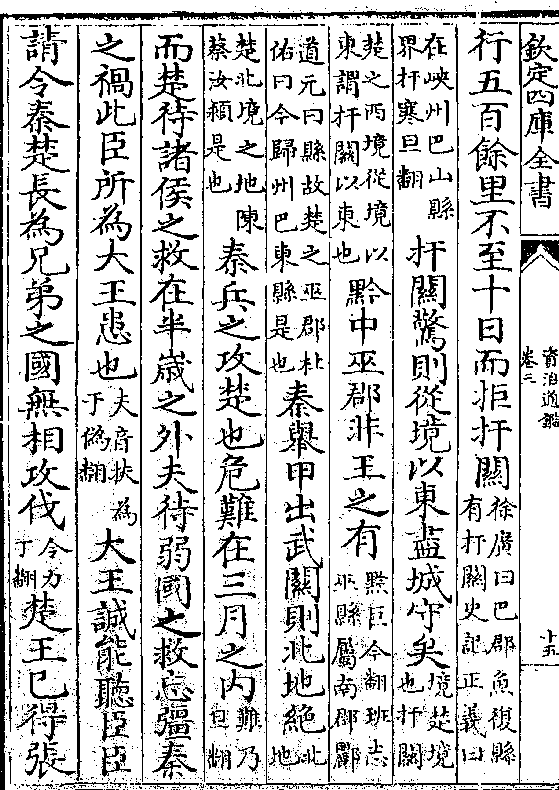 欽定四庫全書
資治通鑑
卷三
十五
行五百餘里不至十日而拒扞關徐廣曰巴郡魚復縣有扞關史記正義曰
在峽州巴山縣界扞寒旦翻扞關驚則從境以東盡城守矣境楚境也扞關
楚之西境從境以東謂扞關以東也黔中巫郡非王之有黔巨今翻班志巫縣屬南郡酈
道元曰縣故楚之巫郡杜佑曰今歸州巴東縣是也秦舉甲出武關則北地絶北地
楚北境之地陳蔡汝潁是也秦兵之攻楚也危難在三月之内難乃旦翻
而楚待諸侯之救在半嵗之外夫待弱國之救忘彊秦
之禍此臣所為大王患也夫音扶為于偽翻大王誠能聽臣臣
請令秦楚長為兄弟之國無相攻伐令力丁翻楚王已得張